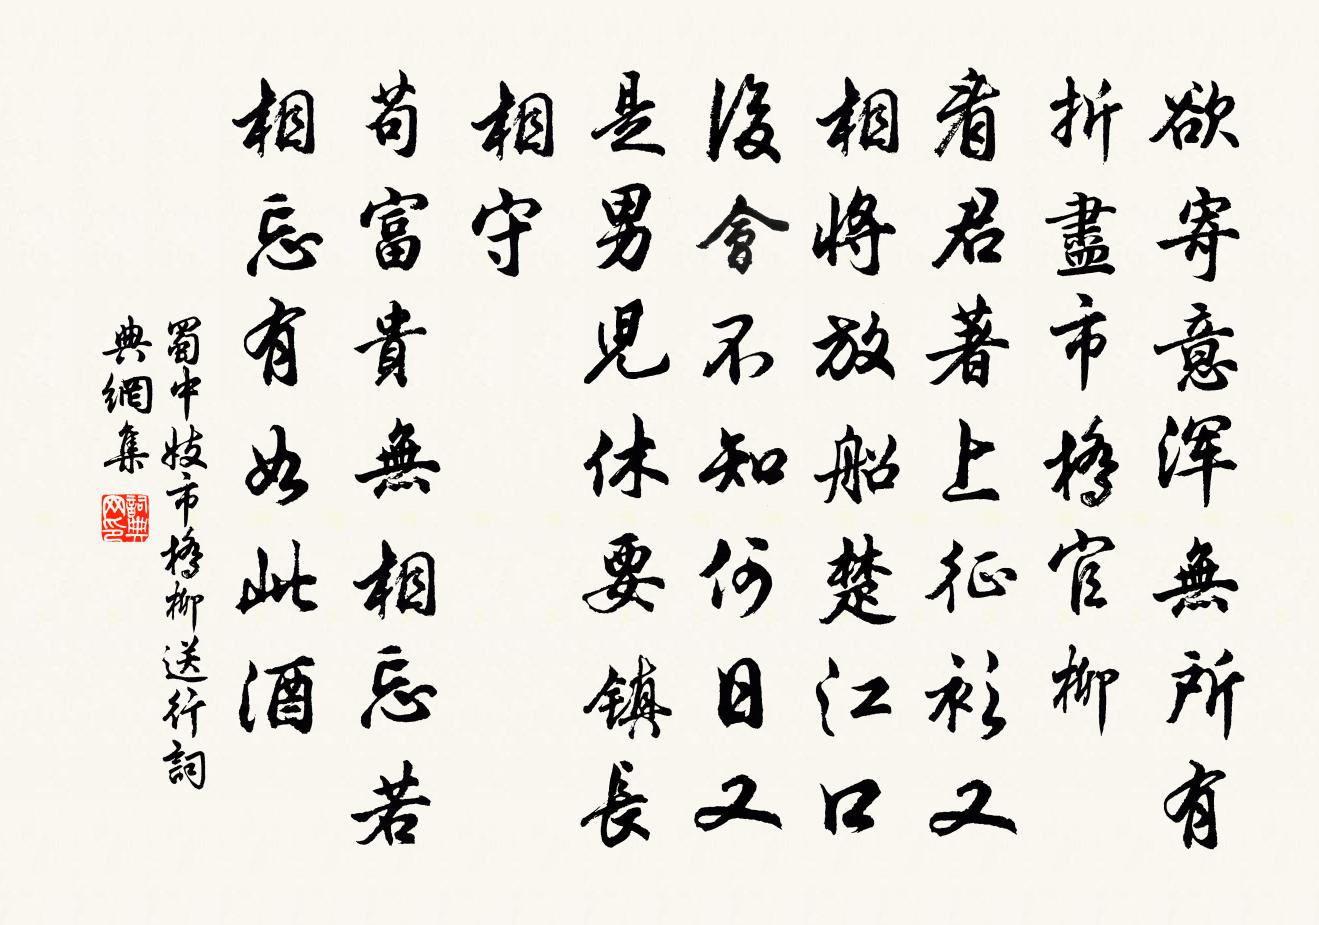 欲寄意浑無所有
折盡市橋官柳
看君著上征衫又
相將放船楚江口
後會不知何日又
是男兒休要鎮長
相守
苟富貴無相忘若
相忘有如此酒
蜀中妓市橋柳送行詞
典網集
詞典网印